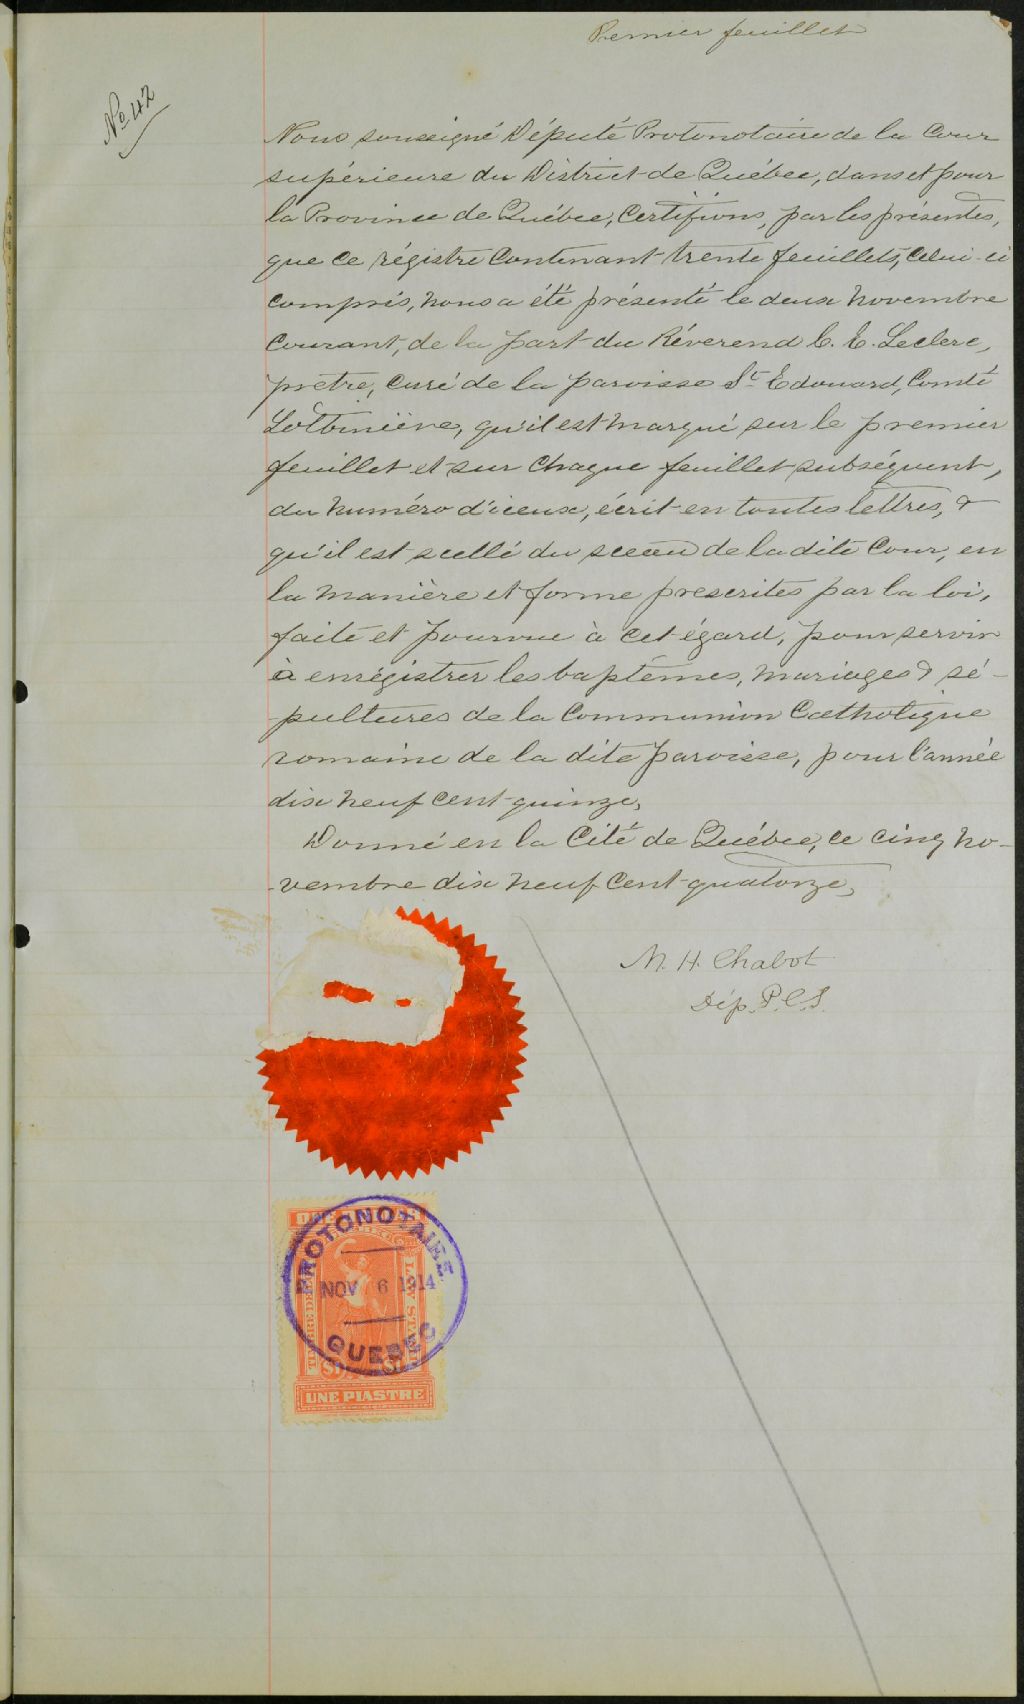 Premier feuillet
No 42
Nous soussigné Député Protonotaire de la Cour
supérieure du District de Québec, dans et pour
la Province de Québec, Certifions, par les présentes,
que ce régistre contenant trente feuillets, celui-ci
compris, nous a été présenté le deux novembre
courant, de la part du Réverend C. E. Leclerc,
prêtre, curé de la paroisse St Edouard, Comté
Lotbinière, qu'il est marqué sur le premier
feuillet et sur chaque feuillet subséquent,
du numéro d'iceux, écrit en toutes lettres, &
qu'il est scellé du sceau de la dite Cour, en
la manière et forme prescrites par la loi,
faite et pourvue à cet égard, pour servir
à enrégistrer les baptêmes, mariages & sé-
-pultures de la Communion Catholique
romaine de la dite paroisse, pour l'année
dix neuf cent quinze,
Donné en la Cité de Québec, ce cinq no-
-vembre dix neuf cent quatorze,
M. H. Chabot
Dép. P.C.S.
PROTONOTAIRE
NOV 6 1914
QUEBEC
LAW STAMP
UNE PIASTRE